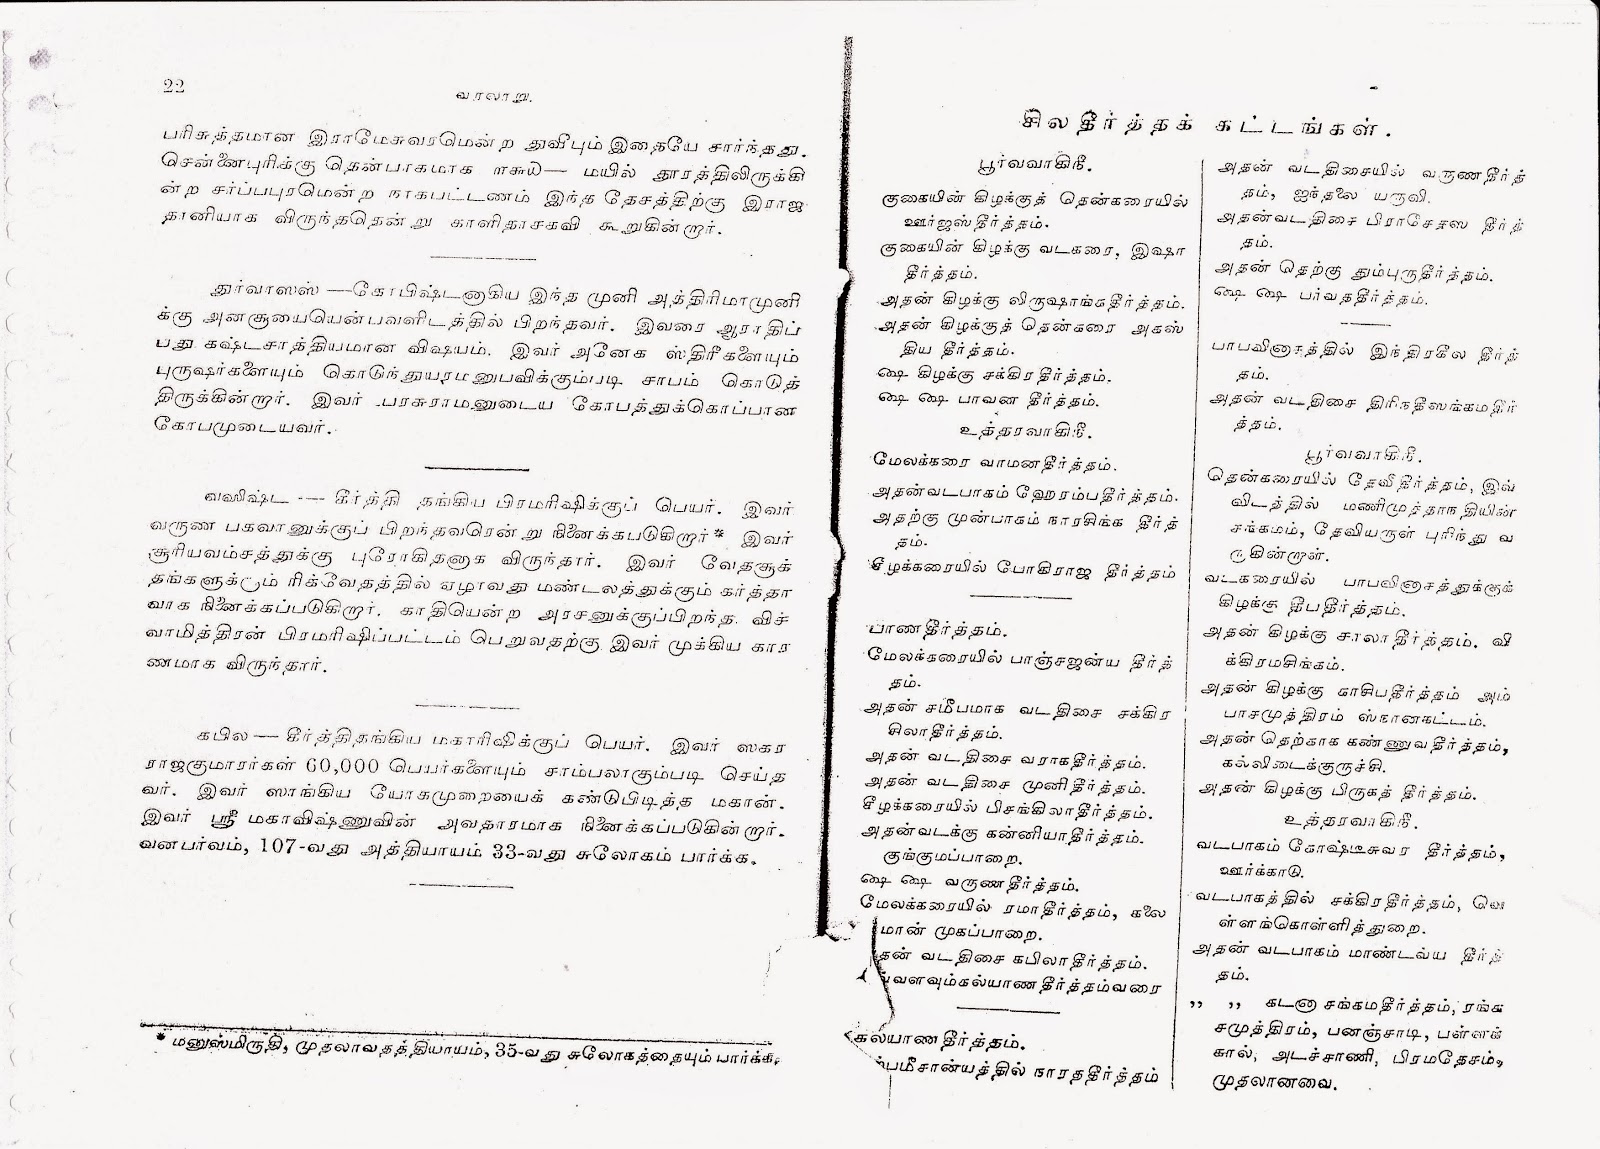 22
வரலாறு.
பரிசுத்தமான இராமேசுவரமென்ற துவீபும் இதையே சார்ந்தது.
சென்னைபுரிக்கு தென்பாகமாக மயில் தூரத்திலிருக்கி
ன்ற சர்ப்பபுரமென்ற நாகபட்டணம் இந்த தேசத்திற்கு இராஜ
தானியாக விருந்ததென்று காளிதாசகவி கூறுகின்றார்.
துர்வாஸஸ் —கோபிஷ்டனாகிய இந்த முனி அத்திரிமாமுனி
க்கு அனசூயையென்பவளிடத்தில் பிறந்தவர். இவரை ஆராதிப்
பது கஷ்டசாத்தியமான விஷயம். இவர் அனேக ஸ்திரீகளையும்
புருஷர்களையும் கொடுந்துயரமனுபவிக்கும்படி சாபம் கொடுத்
திருக்கின்றார். இவர் பரசுராமனுடைய கோபத்துக்கொப்பான
கோபமுடையவர்.
வஸிஷ்ட — கீர்த்தி தங்கிய பிரமரிஷிக்குப் பெயர். இவர்
வருண பகவானுக்குப் பிறந்தவரென்று நினைக்கபடுகிறார்* இவர்
சூரியவம்சத்துக்கு புரோகிதனாக விருந்தார். இவர் வேதசூக்
தங்களுக்கும் ரிக்வேதத்தில் ஏழாவது மண்டலத்துக்கும் கர்த்தா
வாக நினைக்கப்படுகிறார். காதியென்ற அரசனுக்குப்பிறந்த விச்
வாமித்திரன் பிரமரிஷிப்பட்டம் பெறுவதற்கு இவர் முக்கிய கார
ணமாக விருந்தார்.
கபில — கீர்த்திதங்கிய மகாரிஷிக்குப் பெயர். இவர் ஸகர
ராஜகுமாரர்கள் 60,000 பெயர்களையும் சாம்பலாகும்படி செய்த
வர். இவர் ஸாங்கிய யோகமுறையைக் கண்டுபிடித்த மகான்.
இவர் ஸ்ரீ மகாவிஷ்ணுவின் அவதாரமாக நினைக்கப்படுகின்றார்.
வனபர்வம், 107-வது அத்தியாயம் 33-வது சுலோகம் பார்க்க.
* மனுஸ்மிருதி, முதலாவதத்தியாயம், 35-வது சுலோகத்தையும் பார்க்க.
சிலதீர்த்தக் கட்டங்கள்.
பூர்வவாகிநீ.
குகையின் கிழக்குத் தென்கரையில்
ஊர்ஜஸ்தீர்த்தம்.
குகையின் கிழக்கு வடகரை, இஷா
தீர்த்தம்.
அதன் கிழக்கு விருஷாங்கதீர்த்தம்.
அதன் கிழக்குத் தென்கரை அகஸ்
திய தீர்த்தம்.
ஷை கிழக்கு சக்கிரதீர்த்தம்.
ஷை ஷை பாவன தீர்த்தம்.
உத்தரவாகிநீ.
மேலக்கரை வாமனதீர்த்தம்.
அதன்வடபாகம் ஹேரம்பதீர்த்தம்.
அதற்கு முன்பாகம் நாரசிங்க தீர்த்
தம்.
கீழக்கரையில் போகிராஜ தீர்த்தம்
பாணதீர்த்தம்.
மேலக்கரையில் பாஞ்சஜன்ய தீர்த்
தம்.
அதன் சமீபமாக வடதிசை சக்கிர
சிலாதீர்த்தம்.
அதன் வடதிசை வராகதீர்த்தம்.
அதன் வடதிசை முனிதீர்த்தம்.
கீழக்கரையில் பிசங்கிலாதீர்த்தம்.
அதன்வடக்கு கன்னியாதீர்த்தம்.
குங்குமப்பாறை.
ஷை ஷை வருணதீர்த்தம்.
மேலக்கரையில் ரமாதீர்த்தம், கலை
மான் முகப்பாறை.
தன் வடதிசை கபிலாதீர்த்தம்.
வ்வளவும்கல்யாணதீர்த்தம்வரை
கல்யாணதீர்த்தம்.
பமீசான்யத்தில் நாரததீர்த்தம்
அதன் வடதிசையில் வருணதீர்த்
தம், ஐந்தலை யருவி.
அதன்வடதிசை பிராசேதஸ தீர்த்
தம்.
அதன் தெற்கு தும்புருதீர்த்தம்.
ஷை ஷை பர்வததீர்த்தம்.
பாபவிநாசத்தில் இந்திரகீல தீர்த்
தம்.
அதன் வடதிசை திரிநதீஸங்கமதீர்
த்தம்.
பூர்வவாகிநீ.
தென்கரையில் தேவீதீர்த்தம், இவ்
விடத்தில் மணிமுத்தாநதியின்
சங்கமம், தேவியருள் புரிந்து வ
ருகின்றாள்.
வடகரையில் பாபவினாசத்துக்குக்
கிழக்கு தீபதீர்த்தம்.
அதன் கிழக்கு சாலாதீர்த்தம். வி
க்கிரமசிங்கம்.
அதன் கிழக்கு காசிபதீர்த்தம் அம்
பாசமுத்திரம் ஸ்நானகட்டம்.
அதன் தெற்காக கண்ணுவதீர்த்தம்,
கல்லிடைக்குருச்சி.
அதன் கிழக்கு பிருகத் தீர்த்தம்.
உத்தரவாகிநீ.
வடபாகம் கோஷ்டீசுவர தீர்த்தம்,
ஊர்க்காடு.
வடபாகத்தில் சக்கிரதீர்த்தம், வெ
ள்ளங்கொள்ளித்துறை.
அதன் வடபாகம் மாண்டவ்ய தீர்த்
தம்.
,, ,, கடனா சங்கமதீர்த்தம், ரங்க
சமுத்திரம், பனஞ்சாடி, பள்ளக்
கால், அடச்சாணி, பிரமதேசம்,
முதலானவை.